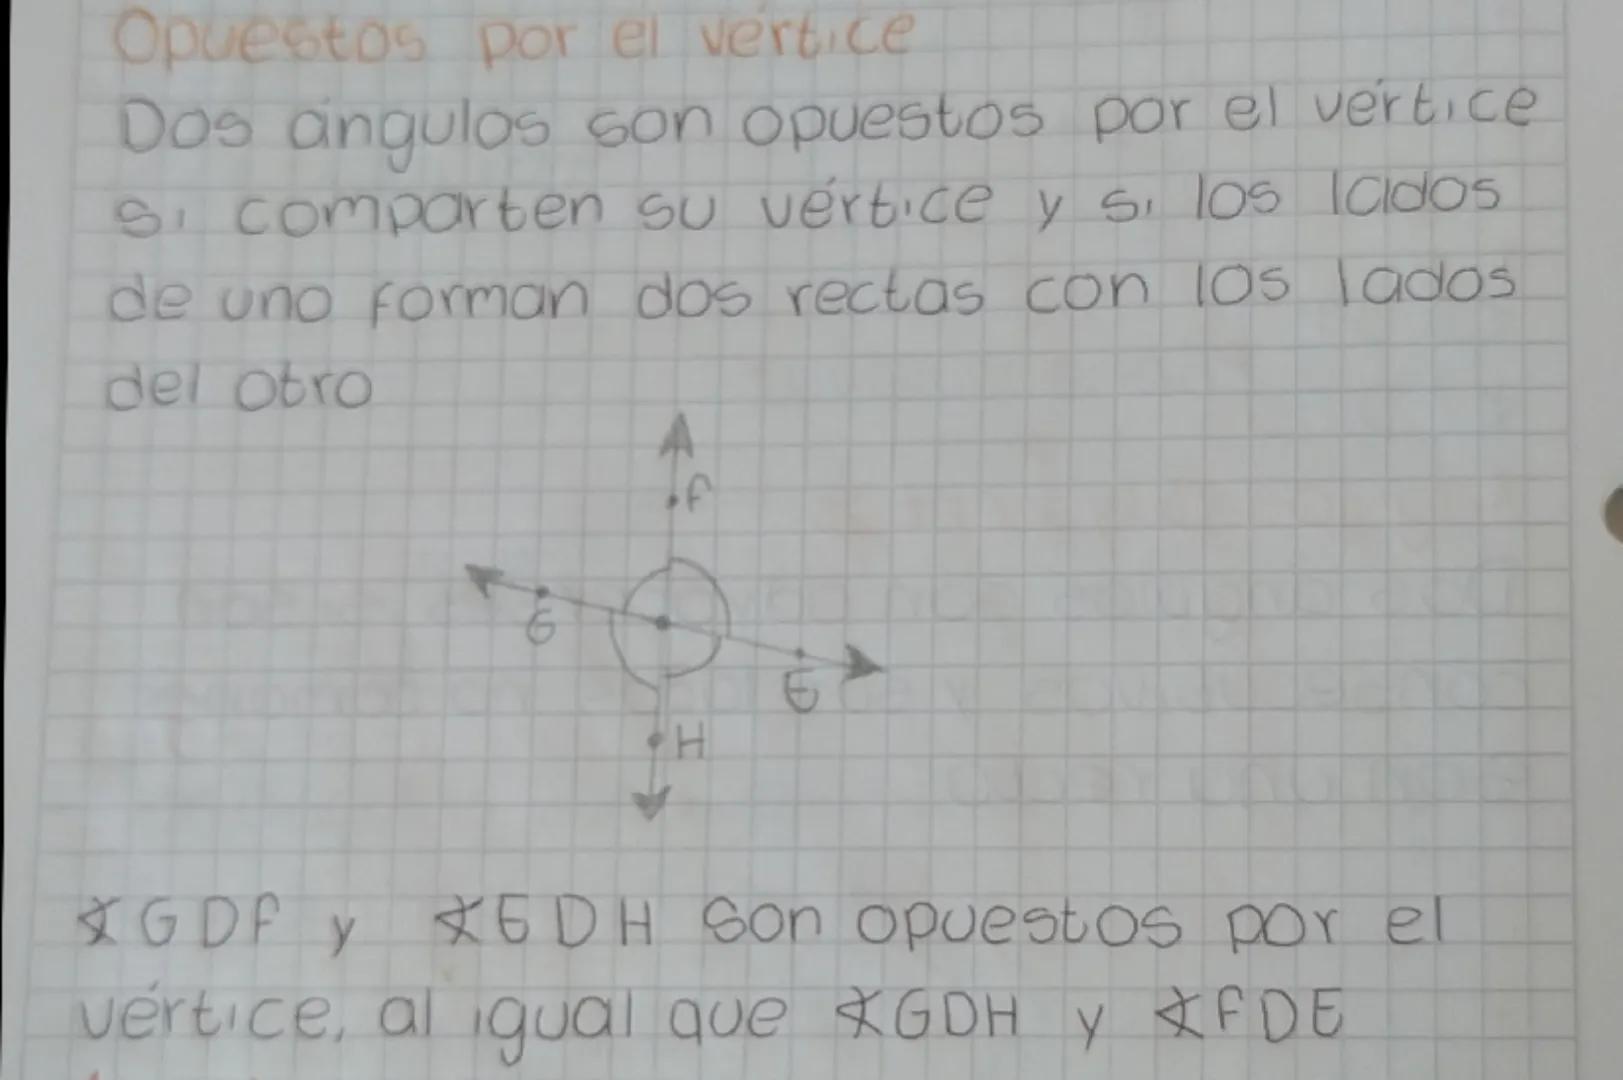 Opuestos por el vértice
Dos ángulos son opuestos por el vértice
si comparten su vértice y si los lados
de uno forman dos rectas con los lados
del otro
F
G
E
H
∡GDF y ∡EDH son opuestos por el
vértice, al igual que ∡GDH y ∡FDE